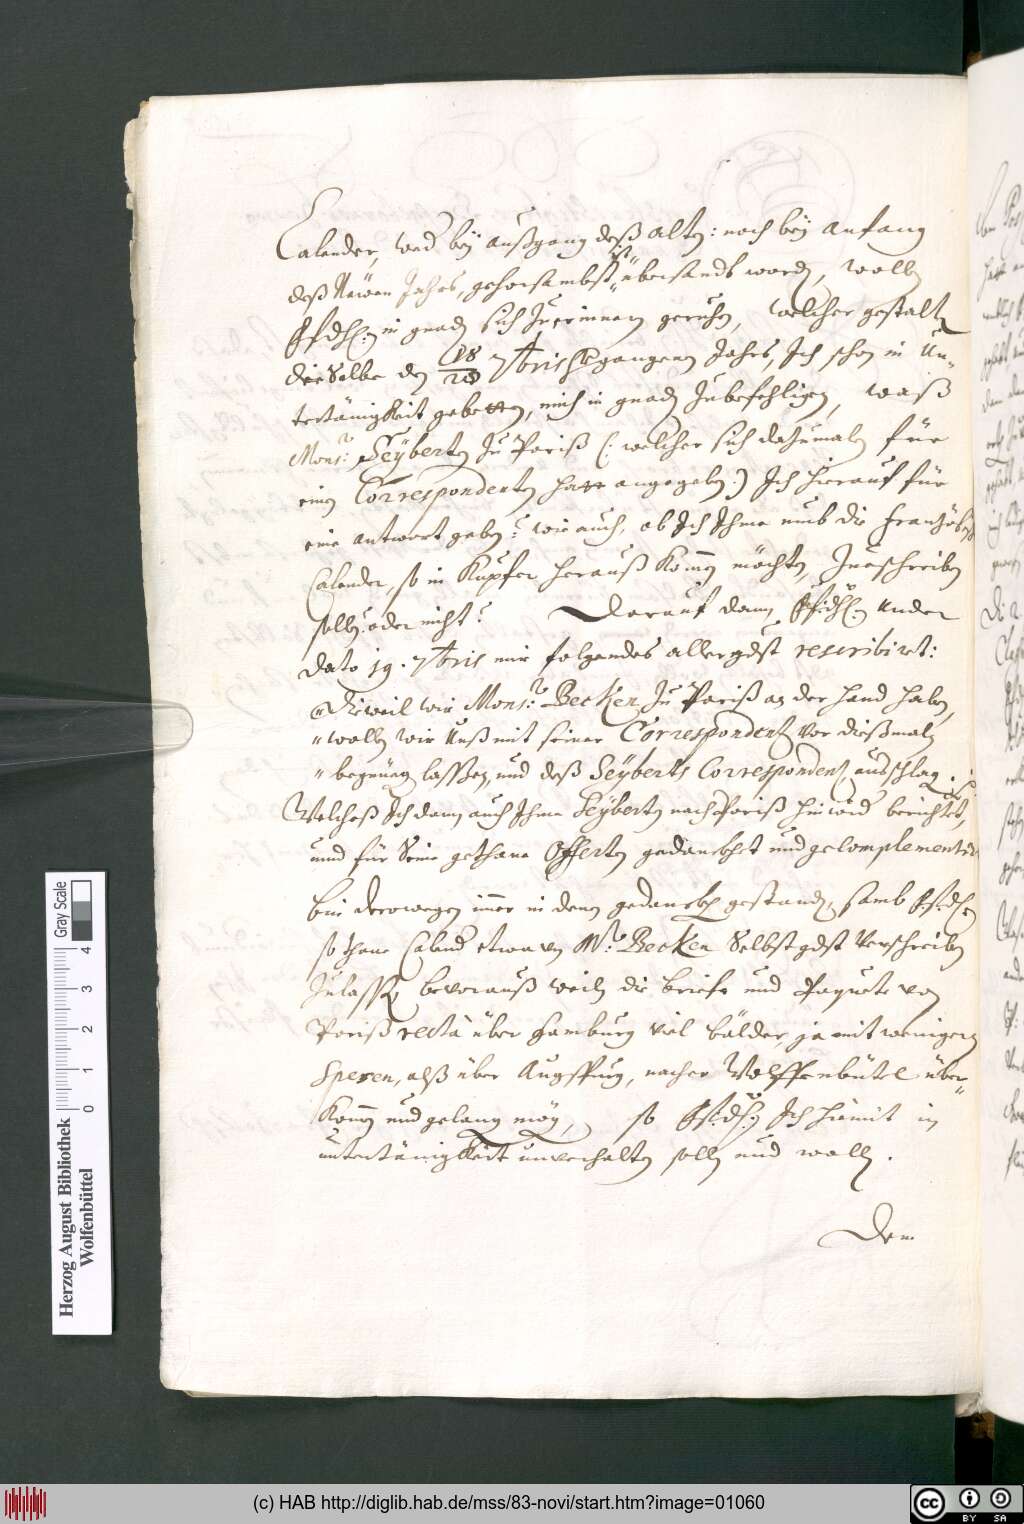 Calender, wed bey außgang deß alten: noch bey anfang
deß Newen Jahrs, gehorsambst übersandt worden, wollen
E fdhl: in gnaden sich zu erinnern geruhen, welcher gestalt
dieselbe den 18/28 7bris gangenen Jahrs, Ich schon in Un-
tertänigkeit gebetten, mich in gnaden zubefehligen, waß
Monsr: Seyberten zu Pariß (: welcher sich dazumalen für
einen Correspondenten hatt angegeben:) Ich hierauf für
eine antwort geben? wie auch, ob Ich Ihme umb die französisch
Calender, so in Kupfer herauß kommen möchten, zueschreiben
sollen, oder nicht? Darauf dann E fdhl: under
dato 19. 7bris mir folgendes allergdst rescribiret:
"Dieweil wir Monsr: Becken zu Pariß an der hand haben,
"wollen wir Unß mit seiner Correspondentz vor dießmalen
"begnüegen lassen, und deß Seyberts Correspondentz außschlagen.
Welches Ich dann auch Ihme Seyberten nach Pariß hinwid berichtet,
und für Seine gethane Offerten gedanckhet und gecomplementirt
bin derowegen immer in denen gedancken gestanden, samb E fdhl:
so thane Calend etwa von Mr: Becken Selbst gdst verschreiben
zulassen, bevorauß weilen die briefe und Paquete von
Pariß rectà über Hamburg viel bälder, ja mit wenigern
Spesen, alß über Augspurg, nacher Wolffenbüttel über-
kommen und gelangen mögen, so E fdhl: Ich hiemit in
untertänigkeit unverhalten sollen und wollen.
Dem
Herzog August Bibliothek
Wolfenbüttel
0 1 2 3 4
Gray Scale
(c) HAB http://diglib.hab.de/mss/83-novi/start.htm?image=01060
cc BY SA